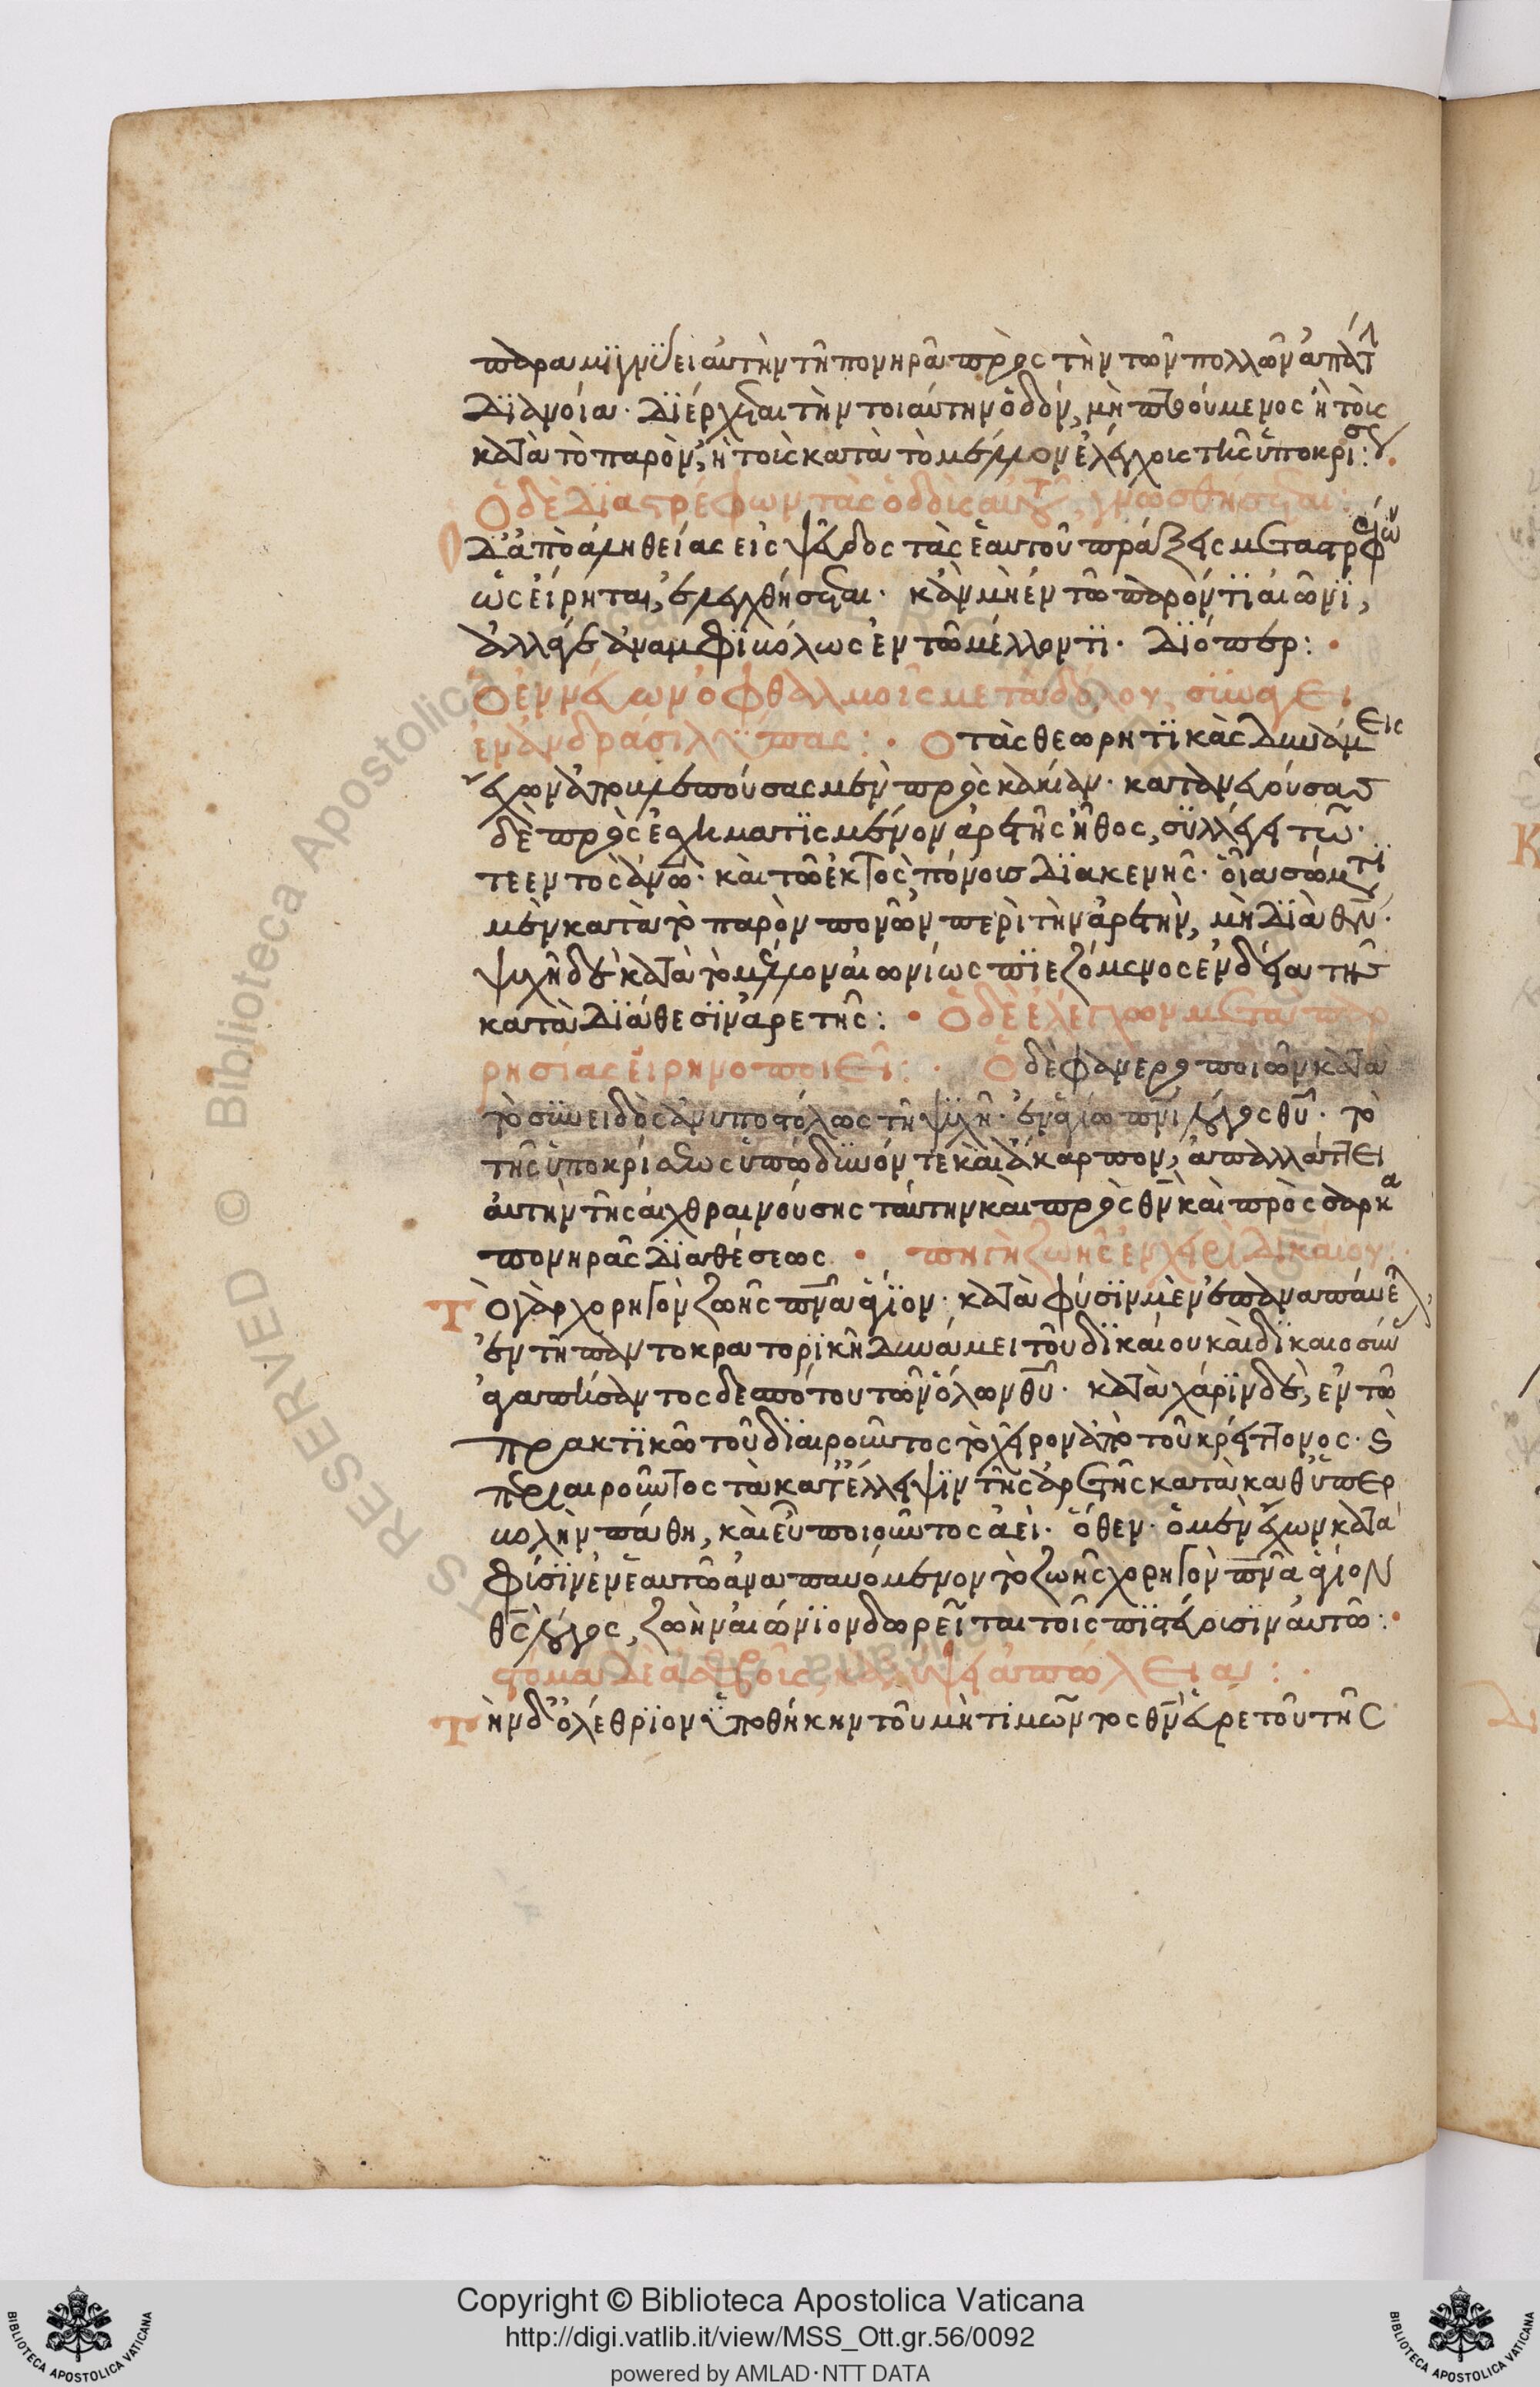 παραμιγνύει αὐτὴν τῆ πονηρᾶ πρὸς τὴν τῶν πολλῶν ἀπάτ
διανοία· διέρχεται τὴν τοιαύτην ὁδόν, μὴ πτούμενος ἢ τοῖς
κατὰ τὸ παρὸν, ἢ τοῖς κατὰ τὸ μέλλον ἐλέγχοις τῆς ὑποκρίσεως:
Ὁ δὲ διαστρέφων τὰς ὁδοὺς αὐτοῦ, γνωσθήσεται:
Ὁ δ' ἀπὸ ἀληθείας εἰς ψεῦδος τὰς ἑαυτοῦ πράξεις μεταστρέφων
ὡς εἴρηται, ἐλεγχθήσεται· κἂν μὴ ἐν τῶ παρόντϊ αἰῶνϊ,
ἀλλά γε ἀναμφϊβόλως ἐν τῶ μέλλοντϊ· διόπερ:
Ὁ ἐννεύων ὀφθαλμοῖς μετὰ δόλου, συνάγει
ἐν ἀνδράσι λύπας: Ὁ τὰς θεωρητϊκὰς δυνάμεις
ἔχων ἀποβλεπούσας μὲν πρὸς κακίαν· κατανευούσας
δὲ πρὸς ἐσχηματϊσμένον ἀρετῆς ἦθος, συλλέγει τῶ
τε ἐντὸς ἀνω· καὶ τῶ ἐκτὸς πόνοις διακενῆς· οἷα σώματϊ
μὲν κατὰ τὸ παρὸν πονῶν περὶ τὴν ἀρετὴν, μὴ διὰ θν·
ψυχῆ δὲ κατὰ τὸ μέλλον αἰωνίως πϊεζόμενος ἐνδεία τῆς
κατὰ διάθεσϊν ἀρετῆς: Ὁ δὲ ἐλέγχων μετὰ παρ
ρησίας εἰρηνοποιεῖ: Ὁ δὲ φανεροποιῶν κατὰ
τὸ συνειδὸς ἀνυποστόλως τῆ ψυχῆ· ἐν ἁγίω πνι λόγος θυ· τὸ
τῆς ὑποκρίσεως ὑπώδυνόν τε καὶ ἄκαρπον, ἀπαλλάττει
αὐτὴν τῆς ἐχθραινούσης ταύτην καὶ πρὸς θν καὶ πρὸς σάρκα
πονηρᾶς διαθέσεως πηγὴ ζωῆς ἐν χειρὶ δικαίου·
Τὸ γὰρ χορηγὸν ζωῆς πνα ἅγϊον· κατὰ φύσϊν μὲν ἐπαναπαύε
ἐν τῆ παντοκρατορϊκῆ δυνάμει τοῦ δϊκαίου καὶ δϊκαιοσύν
ἀγαπήσαντος δεσπότου τῶν ὅλων θυ· κατὰ χάρϊν δὲ, ἐν τῶ
πρακτϊκῶ τοῦ δϊαιροῦντος τὸ χεῖρον ἀπὸ τοῦ κρείττονος·
περιαιροῦντος τὰ κατ' ἔλλειψϊν τῆς ἀρετῆς κατὰ καθ' ὑπερ
βολὴν πάθη, καὶ εὖ ποιοῦντος ἀεὶ· ὅθεν· ὁ μὲν ἔχων κατὰ
φύσϊν ἐν ἑαυτῶ ἀναπαυόμενον τὸ ζωῆς χορηγὸν πνα ἅγιον
θς λόγος, ζωὴν αἰώνϊον δωρεῖται τοῖς πϊστεύουσιν αὐτῶ:
στόμα δὲ ἀσεβοῦς καλύψει ἀπώλεια:
Τὴν δ' ὀλέθρϊον ὑποθήκην τοῦ μὴ τιμῶντος θν αἱρετοῦ τῆς
Copyright © Biblioteca Apostolica Vaticana
http://digi.vatlib.it/view/MSS_Ott.gr.56/0092
powered by AMLAD·NTT DATA